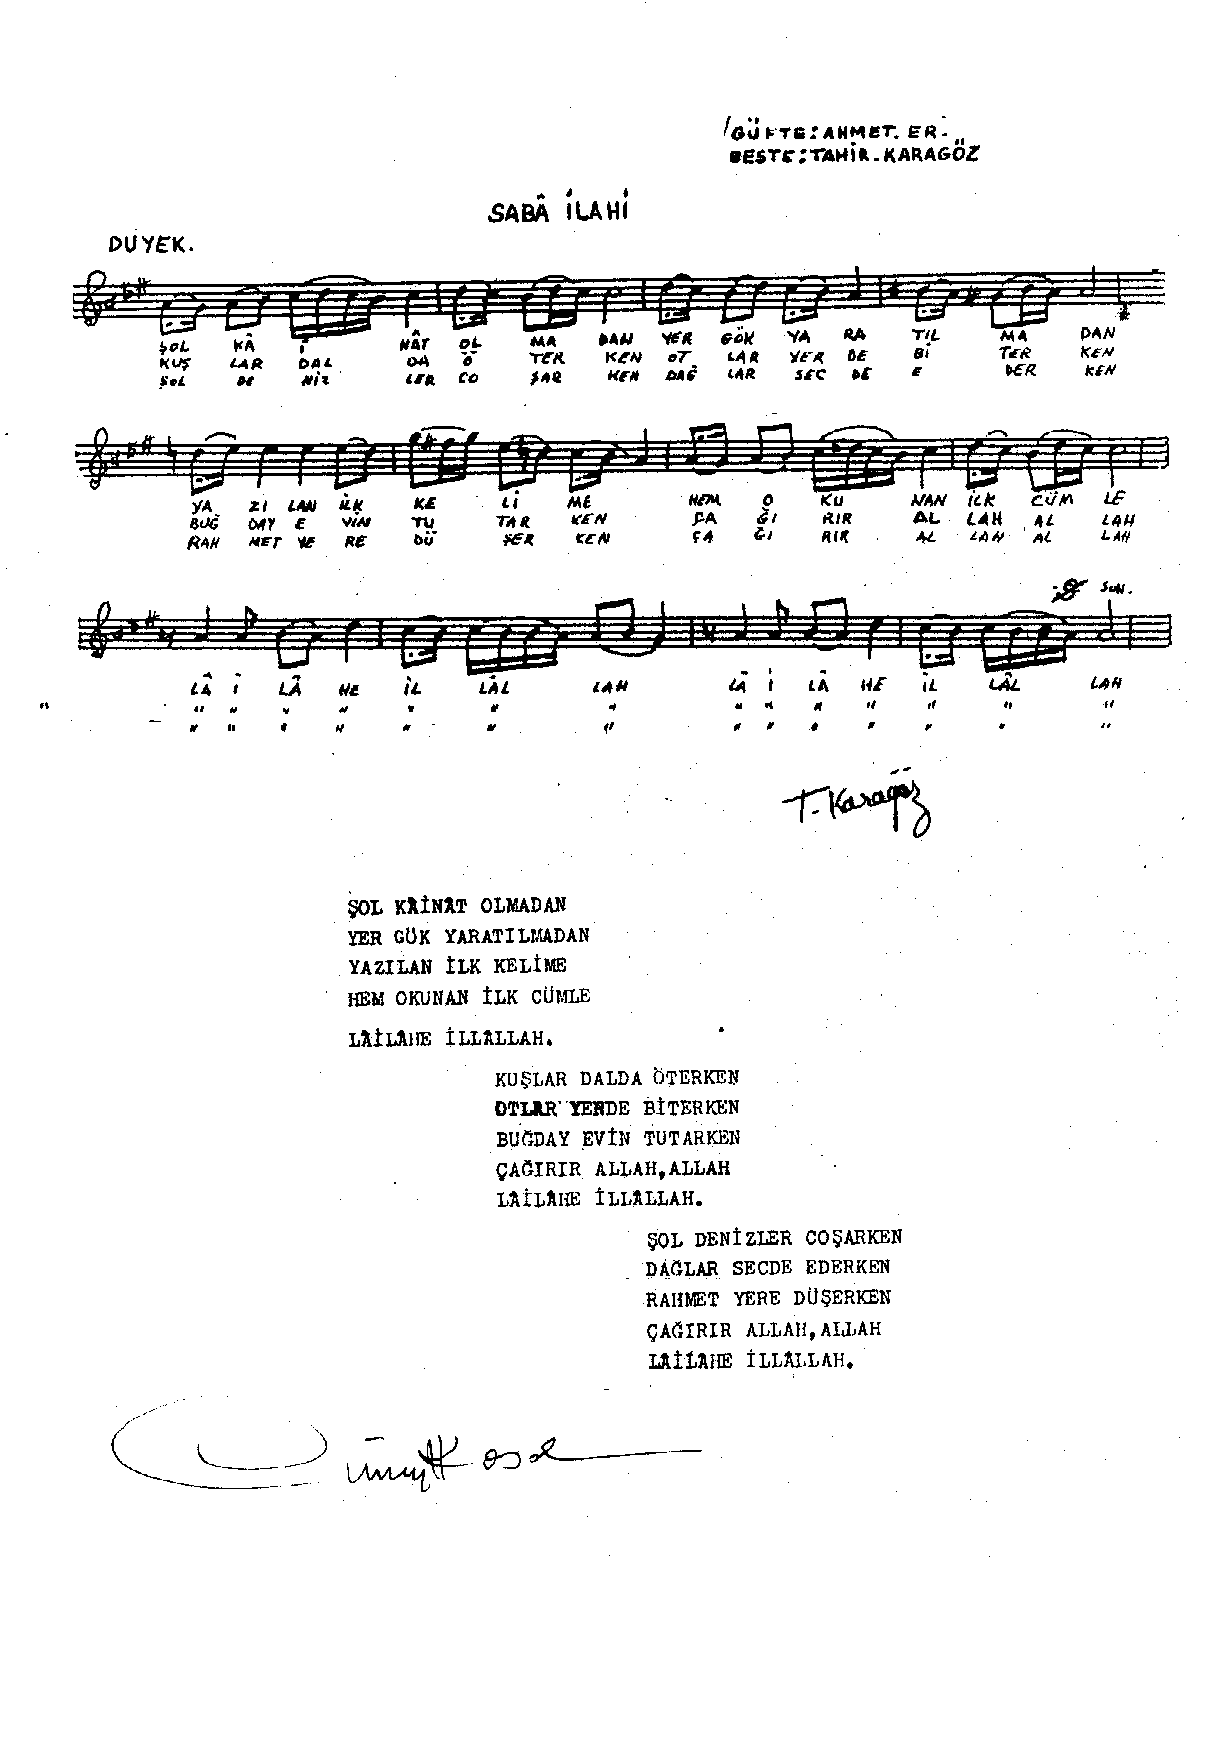 GÜFTE:AHMET.ER.
BESTE:TAHİR.KARAGÖZ
SABÂ İLAHİ
DUYEK.
ŞOL KÂ İ NÂT OL MA DAN YER GÖK YA RA TIL MA DAN
KUŞ LAR DAL DA Ö TER KEN OT LAR YER DE Bİ TER KEN
ŞOL DE NİZ LER CO ŞAR KEN DAĞ LAR SEC DE E DER KEN
YA ZI LAN İLK KE Lİ ME HEM O KU NAN İLK CÜM LE
BUĞ DAY E VİN TU TAR KEN ÇA ĞI RIR AL LAH AL LAH
RAH MET YE RE DÜ ŞER KEN ÇA ĞI RIR AL LAH AL LAH
SON.
LÂ İ LÂ HE İL LÂL LAH LÂ İ LÂ HE İL LÂL LAH
" " " " " " " " " " " " " "
" " " " " " " " " " " " " "
T. Karagöz
ŞOL KÂİNÂT OLMADAN
YER GÖK YARATILMADAN
YAZILAN İLK KELİME
HEM OKUNAN İLK CÜMLE
LÂİLÂHE İLLÂLLAH.
KUŞLAR DALDA ÖTERKEN
OTLAR YERDE BİTERKEN
BUĞDAY EVİN TUTARKEN
ÇAĞIRIR ALLAH,ALLAH
LÂİLÂHE İLLÂLLAH.
ŞOL DENİZLER COŞARKEN
DAĞLAR SECDE EDERKEN
RAHMET YERE DÜŞERKEN
ÇAĞIRIR ALLAH,ALLAH
LÂİLÂHE İLLÂLLAH.